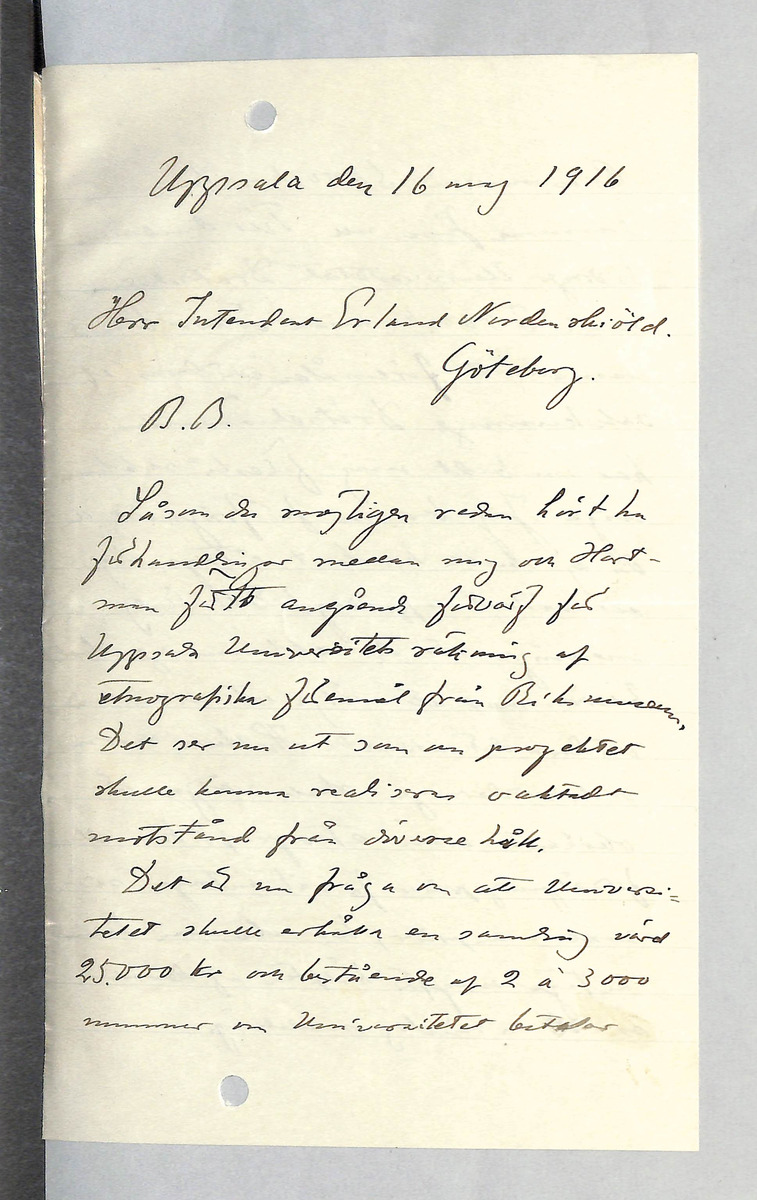 Uppsala den 16 maj 1916
Herr Intendent Erland Nordenskiöld.
Göteborg.
B.B.
Såsom du möjligen redan hört ha
förhandlingar mellan mig och Hart-
man förts angående förvärf för
Uppsala Universitets räkning af
etnografiska föremål från Riksmuseum.
Det ser nu ut som om projektet
skulle kunna realiseras oaktadt
motstånd från diverse håll.
Det är nu fråga om att Universi-
tetet skulle erhålla en samling värd
25.000 kr och bestående af 2 à 3000
nummer om Universitetet betalar